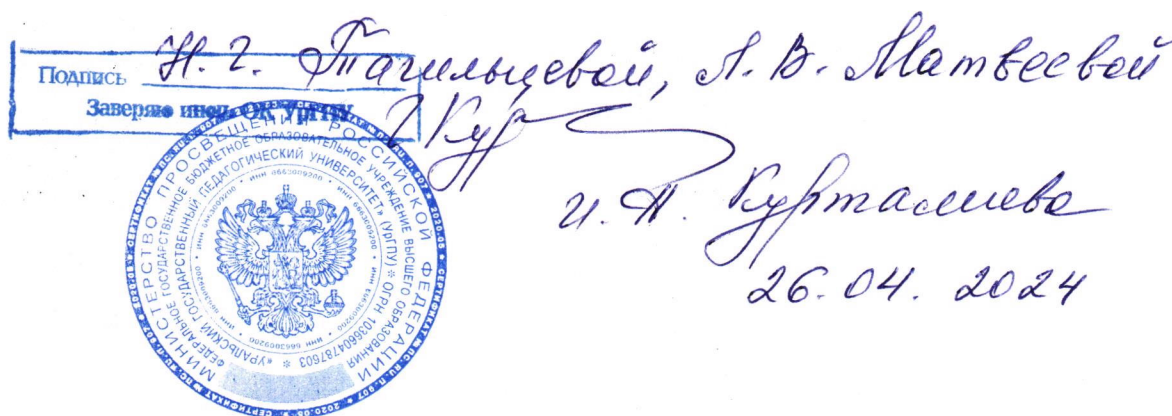 Подпись Н. Г. Тагильцевой, Л. В. Матвеевой
Заверяю инсп. ОК УрГПУ
И. П. Курталиева
26.04.2024
МИНИСТЕРСТВО ПРОСВЕЩЕНИЯ РОССИЙСКОЙ ФЕДЕРАЦИИ
ФЕДЕРАЛЬНОЕ ГОСУДАРСТВЕННОЕ БЮДЖЕТНОЕ ОБРАЗОВАТЕЛЬНОЕ УЧРЕЖДЕНИЕ ВЫСШЕГО ОБРАЗОВАНИЯ
«УРАЛЬСКИЙ ГОСУДАРСТВЕННЫЙ ПЕДАГОГИЧЕСКИЙ УНИВЕРСИТЕТ» (УрГПУ) * ОГРН 1036604787603 *
ИНН 6663009200